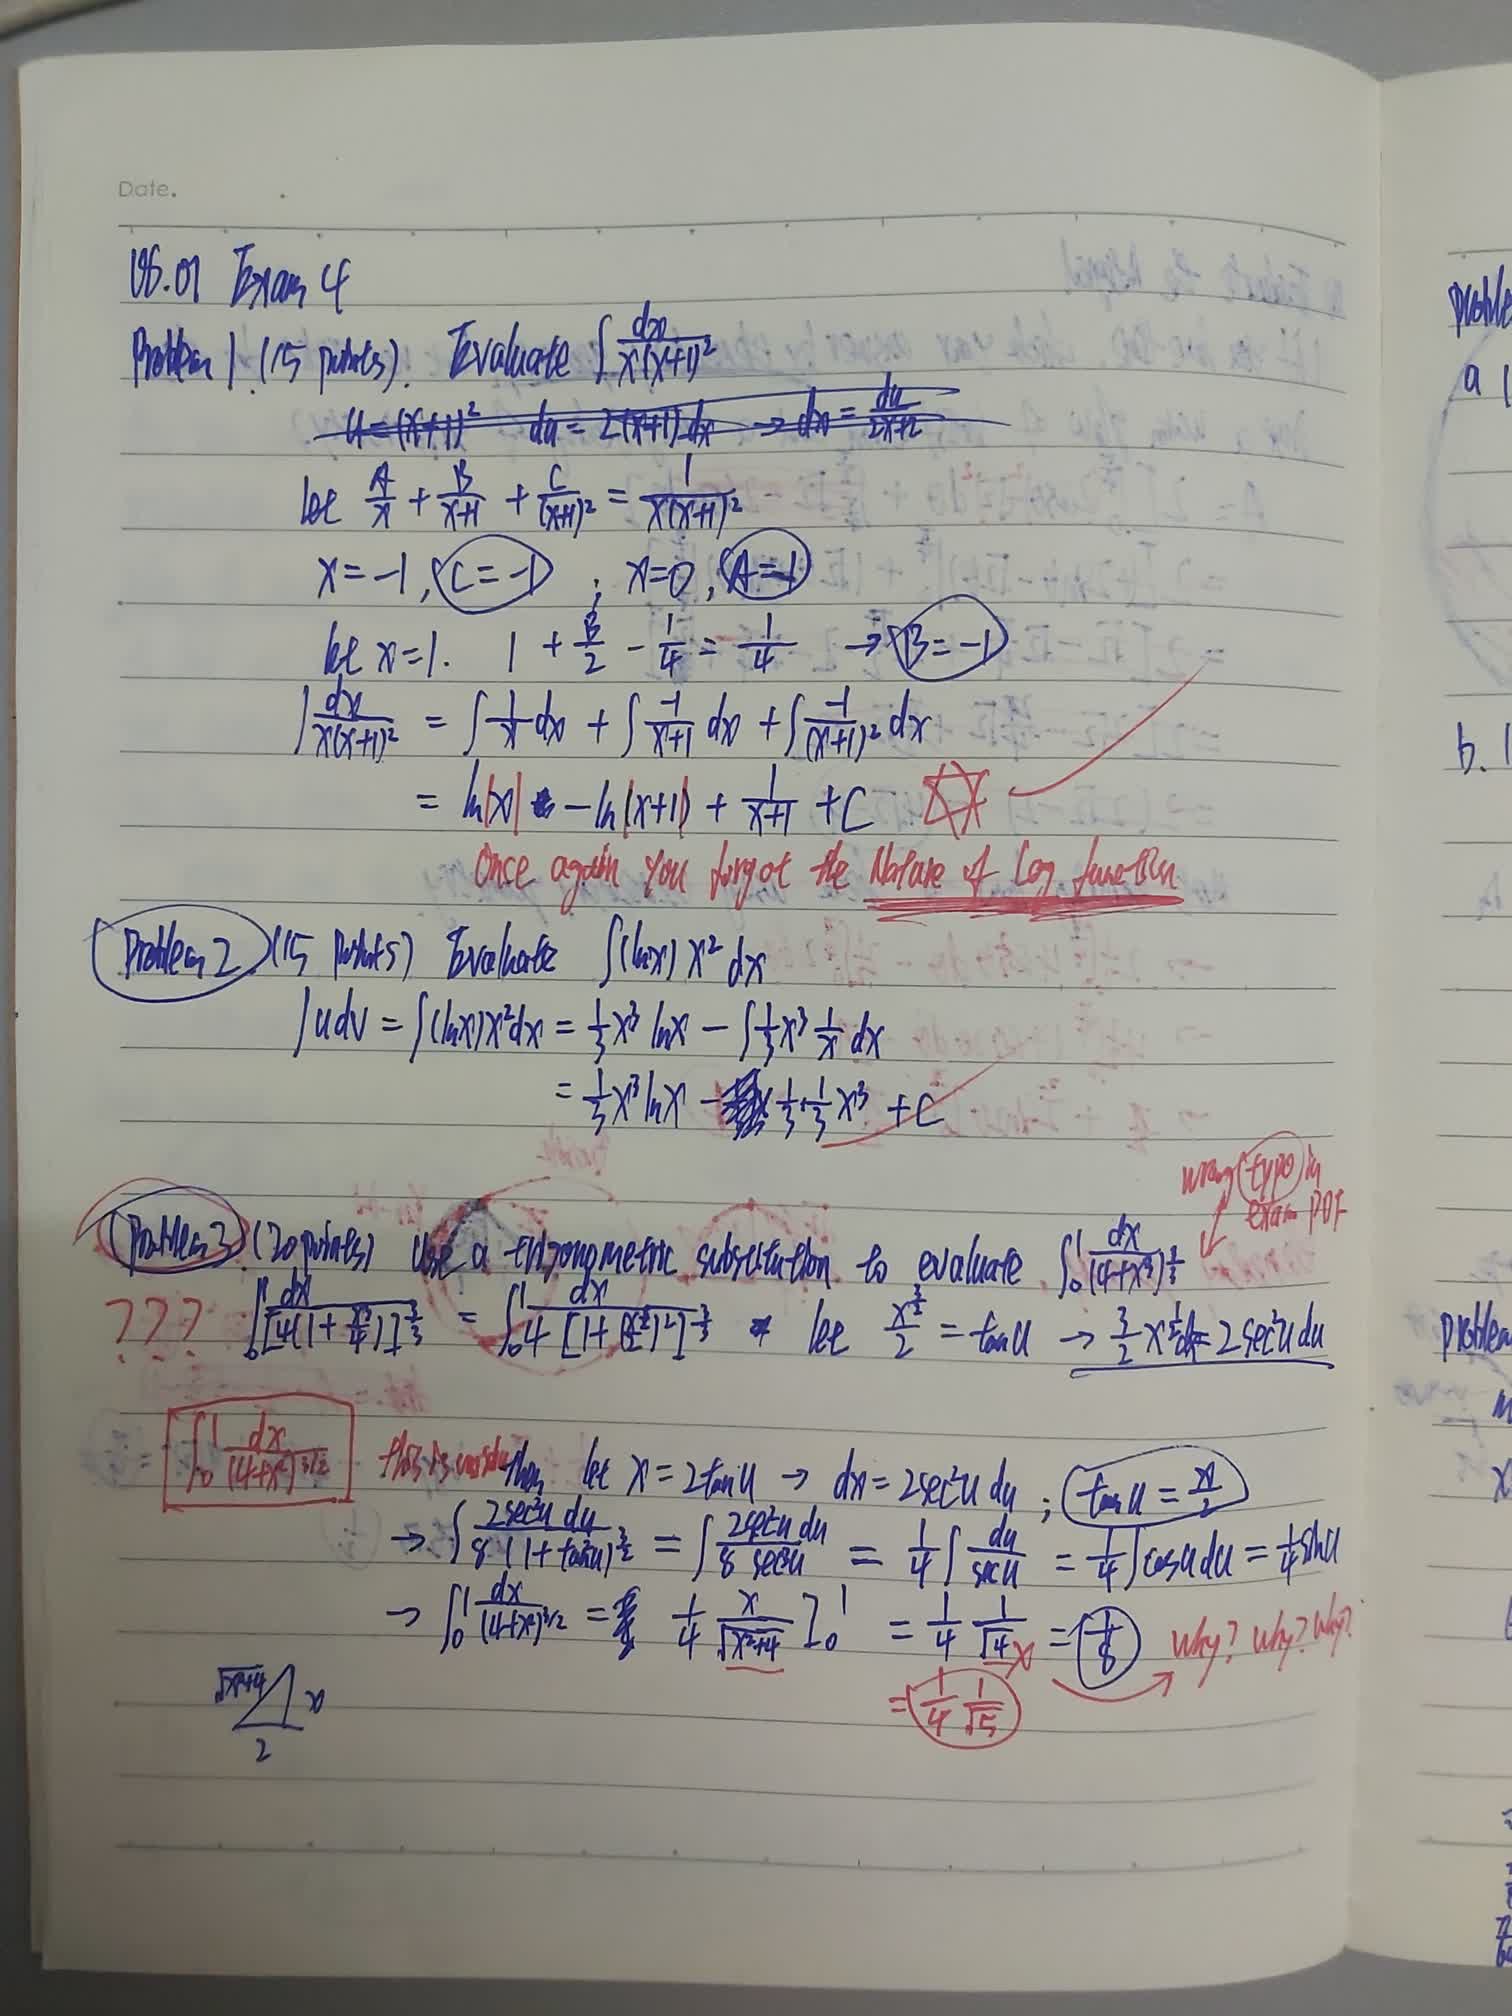 Date.
18.01 Exam 4
Problem 1 (15 points). Evaluate ∫ dx/x(x+1)²
u=(x+1)² du = 2(x+1)dx → dx = du/2x+2
let A/x + B/x+1 + C/(x+1)² = 1/x(x+1)²
x=-1, C=-1 ; x=0, A=1
let x=1. 1 + B/2 - 1/4 = 1/4 → B=-1
∫ dx/x(x+1)² = ∫ 1/x dx + ∫ -1/x+1 dx + ∫ -1/(x+1)² dx
= ln|x| - ln|x+1| + 1/x+1 + C
Once again you forgot the Nature of Log function
Problem 2 (15 points) Evaluate ∫(lnx) x² dx
∫udv = ∫(lnx)x²dx = 1/3 x³ lnx - ∫ 1/3 x³ 1/x dx
= 1/3 x³ lnx - 1/3 · 1/3 x³ + C
wrong typo in
exam PDF
Problem 3 (20 points) Use a trigonometric substitution to evaluate ∫₀¹ dx/(4+x³)
??? let x^(3/2)/2 = tan u → 3/2 x^(1/2) dx = 2sec²u du
∫₀¹ dx/(4+x²)^(3/2) then let x = 2tan u → dx = 2sec²u du ; tan u = x/2
→ ∫ 2sec²u du/8(1+tan²u)^(3/2) = ∫ 2sec²u du/8 sec³u = 1/4 ∫ du/sec u = 1/4 ∫cos u du = 1/4 sin u
→ ∫₀¹ dx/(4+x²)^(3/2) = 1/4 x/√(x²+4) ]₀¹ = 1/4 1/√4 = 1/8 Why? Why? Why?
= 1/4 1/√5
√(x²+4) x
2
Problem
a
b.
Problem